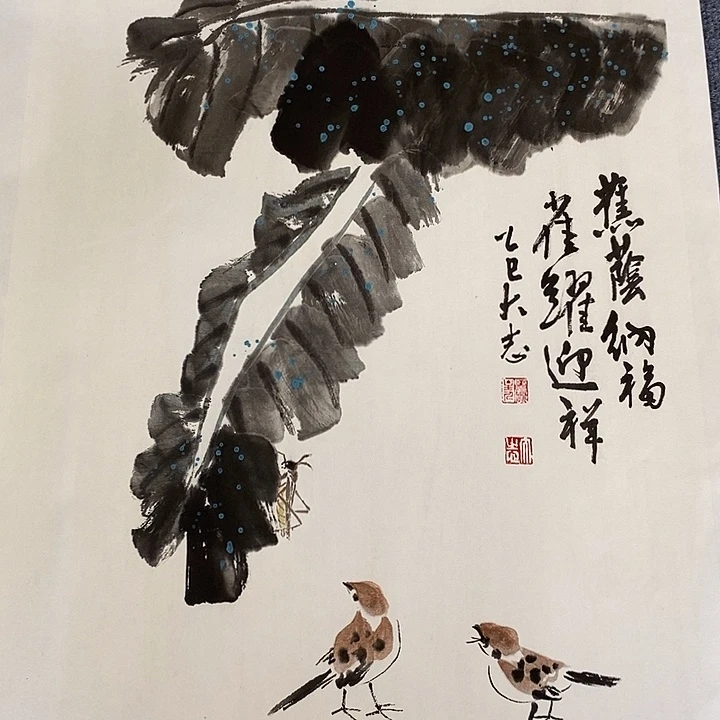 蕉蔭納福
雀躍迎祥
乙巳大志
大志